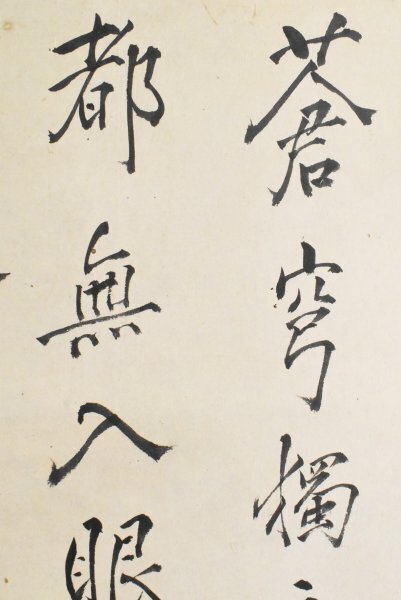 蒼穹獨
都無入眼